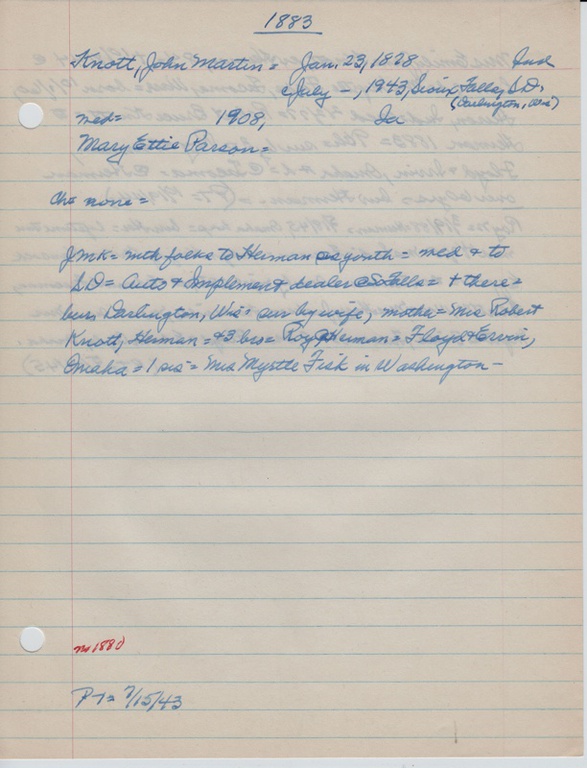 1883
Knott, John Martin = Jan. 23, 1828 Ind
July -, 1943, Sioux Falls, S.D.
(Darlington, Wis)
med = 1908, Ia
Mary Ettie Parson =
Ch = none =
JMK = with folks to Herman as youth = med & to
S.D = Auto & Implement dealer @ So Falls = + there =
bur. Darlington, Wis = sur by wife, mother = Mrs Robert
Knott, Herman = +3 bro = Roy, Herman = Floyd & Ervin,
Omaha = 1 sis = Mrs Myrtle Fisk in Washington -
m 1880
PT = 7/15/43